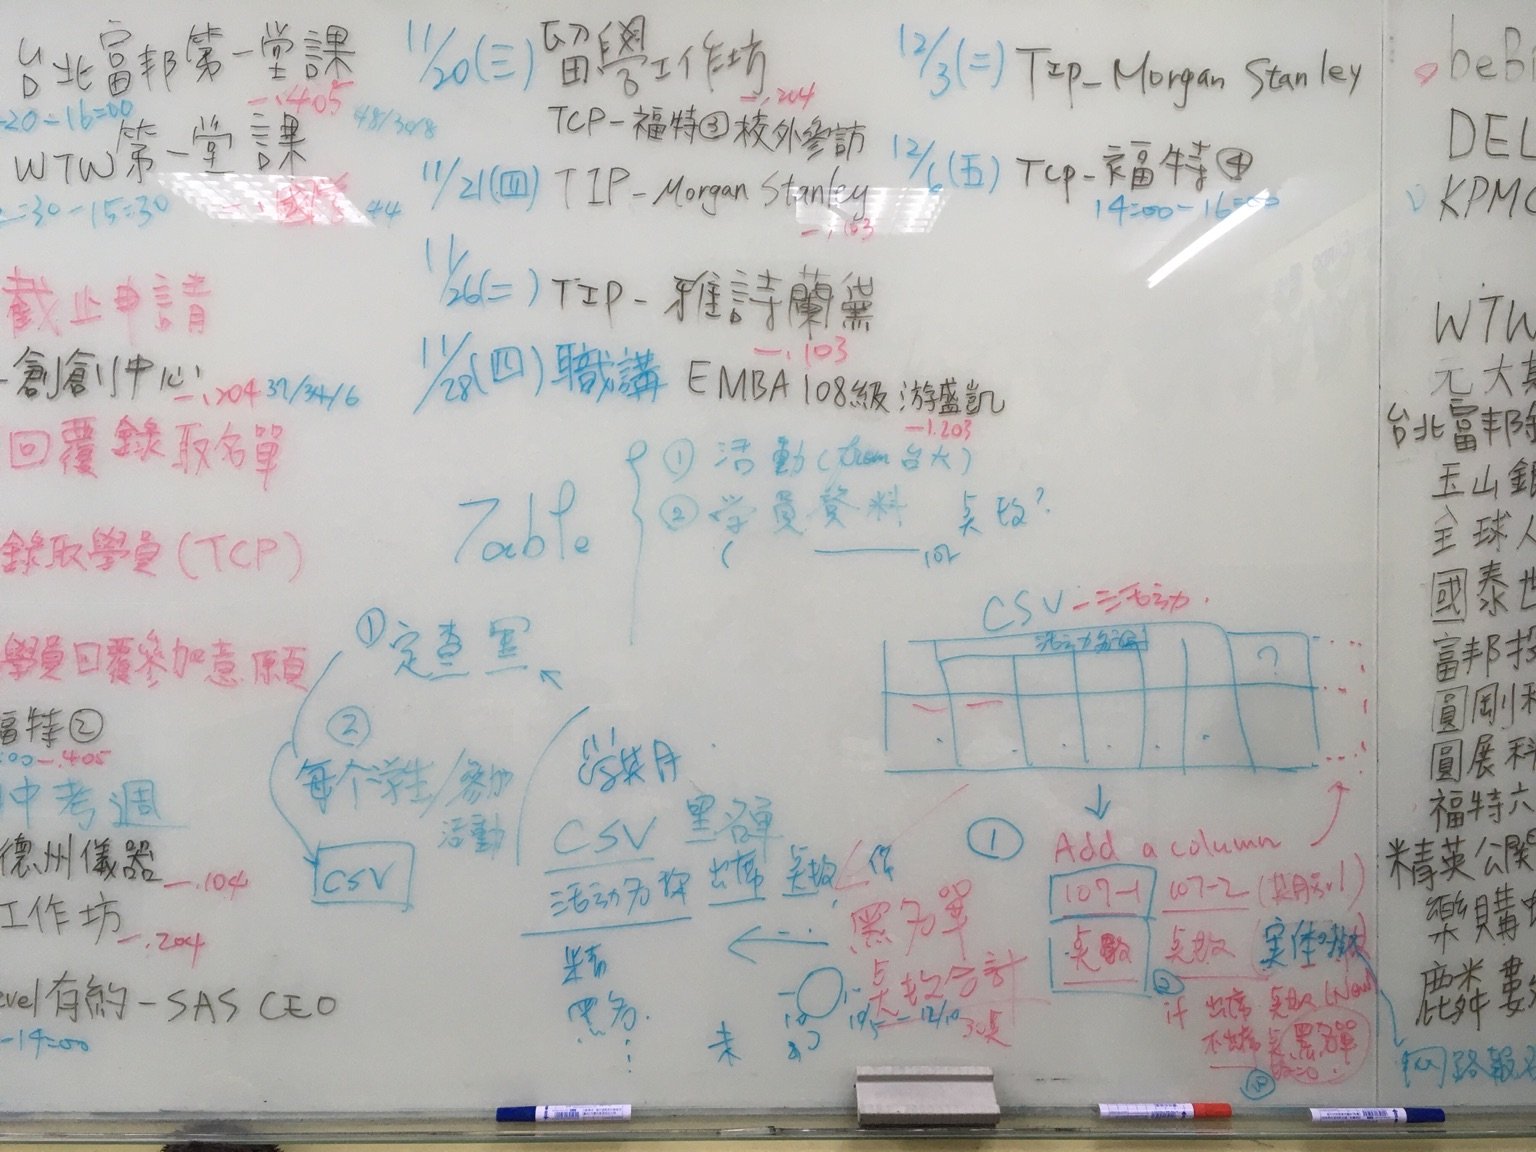 台北富邦第一堂課
-20-16:00
一.405
48/30/8
WTW第一堂課
2:30-15:30
44
截止申請
創創中心
一.204 37/34/6
回覆錄取名單
錄取學員(TCP)
學員回覆參加意願
福特②
:00 一.405
中考週
德州儀器
一.104
工作坊
一.204
evel有約-SAS CEO
-14:00
11/20(三) 留學工作坊
一.204
TCP-福特③校外參訪
11/21(四) TIP-Morgan Stanley
一.103
11/26(二) TIP-雅詩蘭黛
一.103
11/28(四) 職講 EMBA 108級 游盛凱
一.203
12/3(二) TIP-Morgan Stanley
12/6(五) TCP-福特④
14:00-16:00
Table
① 活動(from 台大)
② 学員資料 点数?
① 定查黑
② 每个学生/參加
活動
CSV
CSV 黑名單
活动名称 出席 点数
黑名單
点数合計
30点
未
CSV 一 活动
活动名称
?
① Add a column
107-1 107-2
点数 点数
②
if 出席 点数(New)
不出席 黑名單
beBi
DEL
KPMG
WTW
元大
台北富邦
玉山銀
全球人
國泰世
富邦投
圓剛科
圓展科
福特六
精英公關
樂購
麟數
网路報名